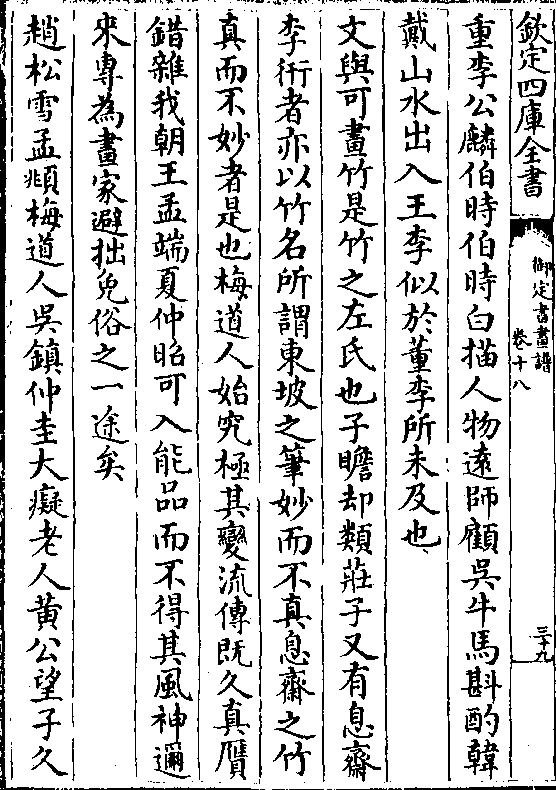 欽定四庫全書
御定書畫譜
卷十八
三十九
重李公麟伯時伯時白描人物遠師顧吳牛馬斟酌韓
戴山水出入王李似於董李所未及也
文與可畫竹是竹之左氏也子瞻却類莊子又有息齋
李衎者亦以竹名所謂東坡之筆妙而不真息齋之竹
真而不妙者是也梅道人始究極其變流傳既久真贋
錯雜我朝王孟端夏仲昭可入能品而不得其風神邇
來專為畫家避拙免俗之一途矣
趙松雪孟頫梅道人吳鎮仲圭大癡老人黃公望子久